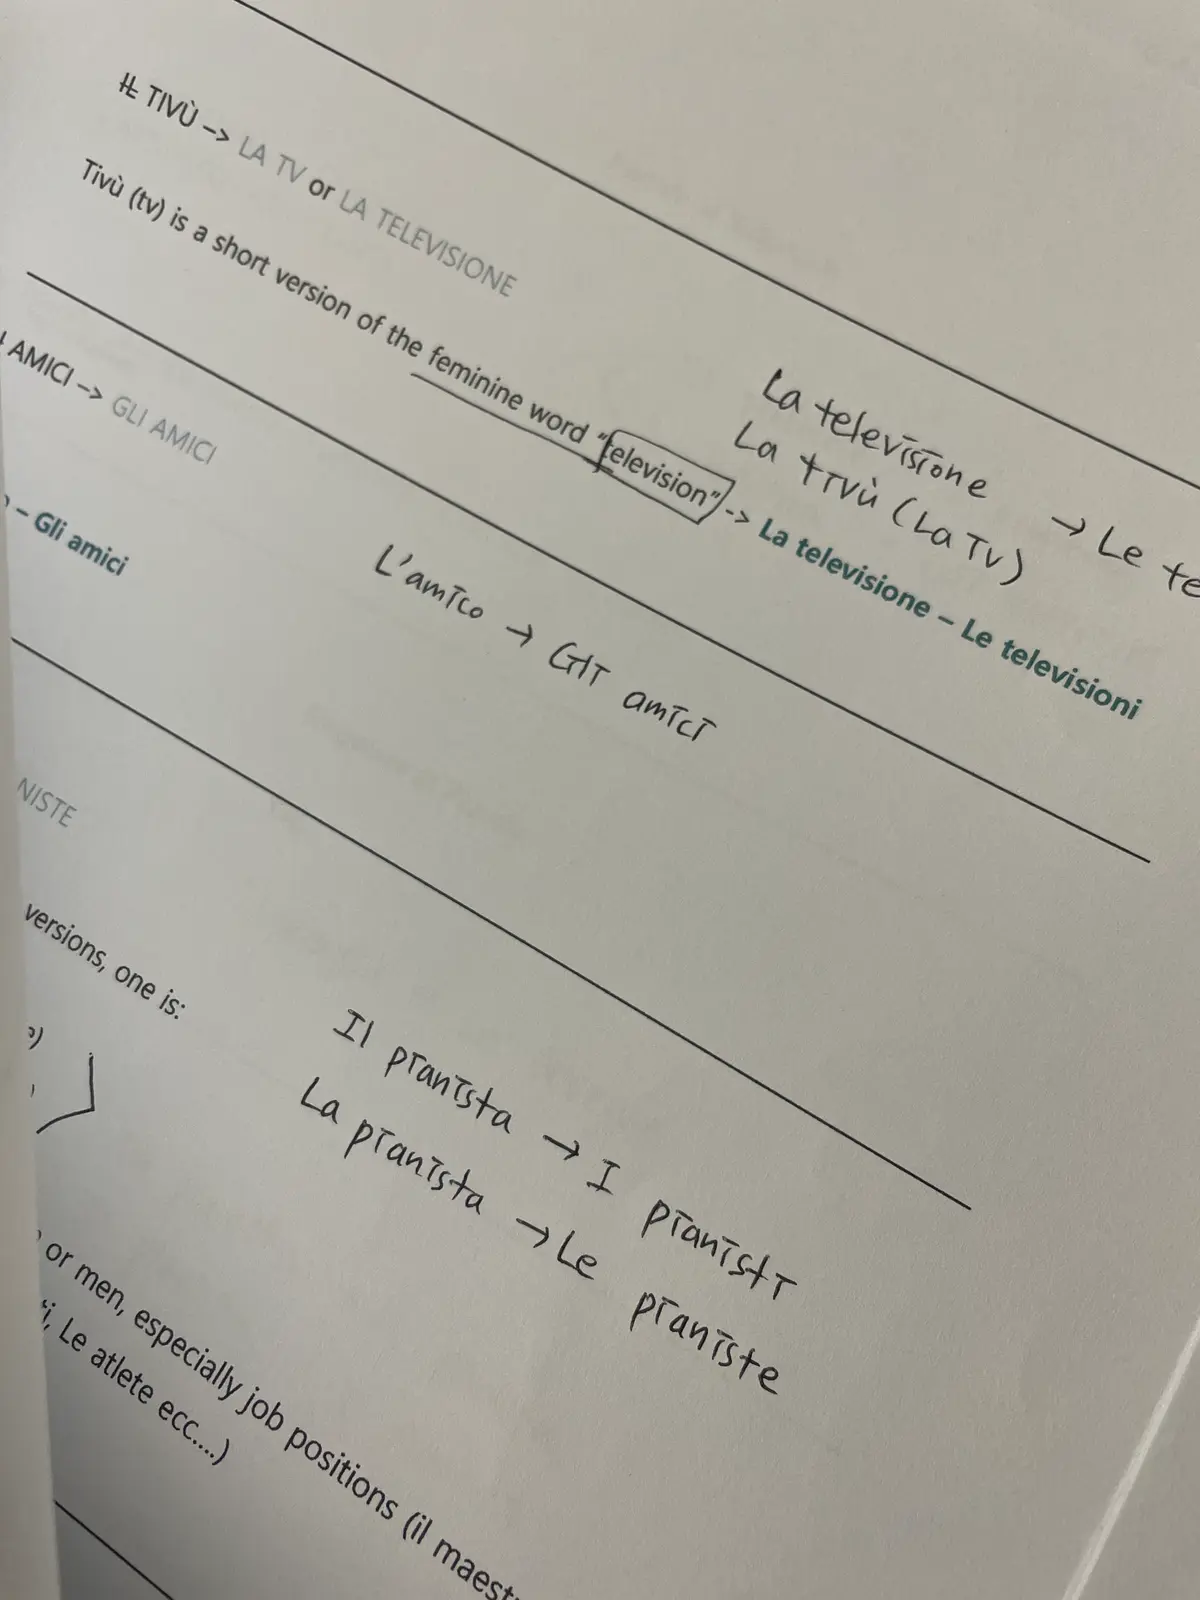 IL TIVÙ -> LA TV or LA TELEVISIONE
Tivù (tv) is a short version of the feminine word "television" -> La televisione – Le televisioni
La televisione
La tivù (La Tv)
→ Le te
AMICI -> GLI AMICI
– Gli amici
L'amico → Gli amici
NISTE
versions, one is:
Il pianista → I pianisti
La pianista → Le pianiste
or men, especially job positions (il maest
Le atlete ecc....)